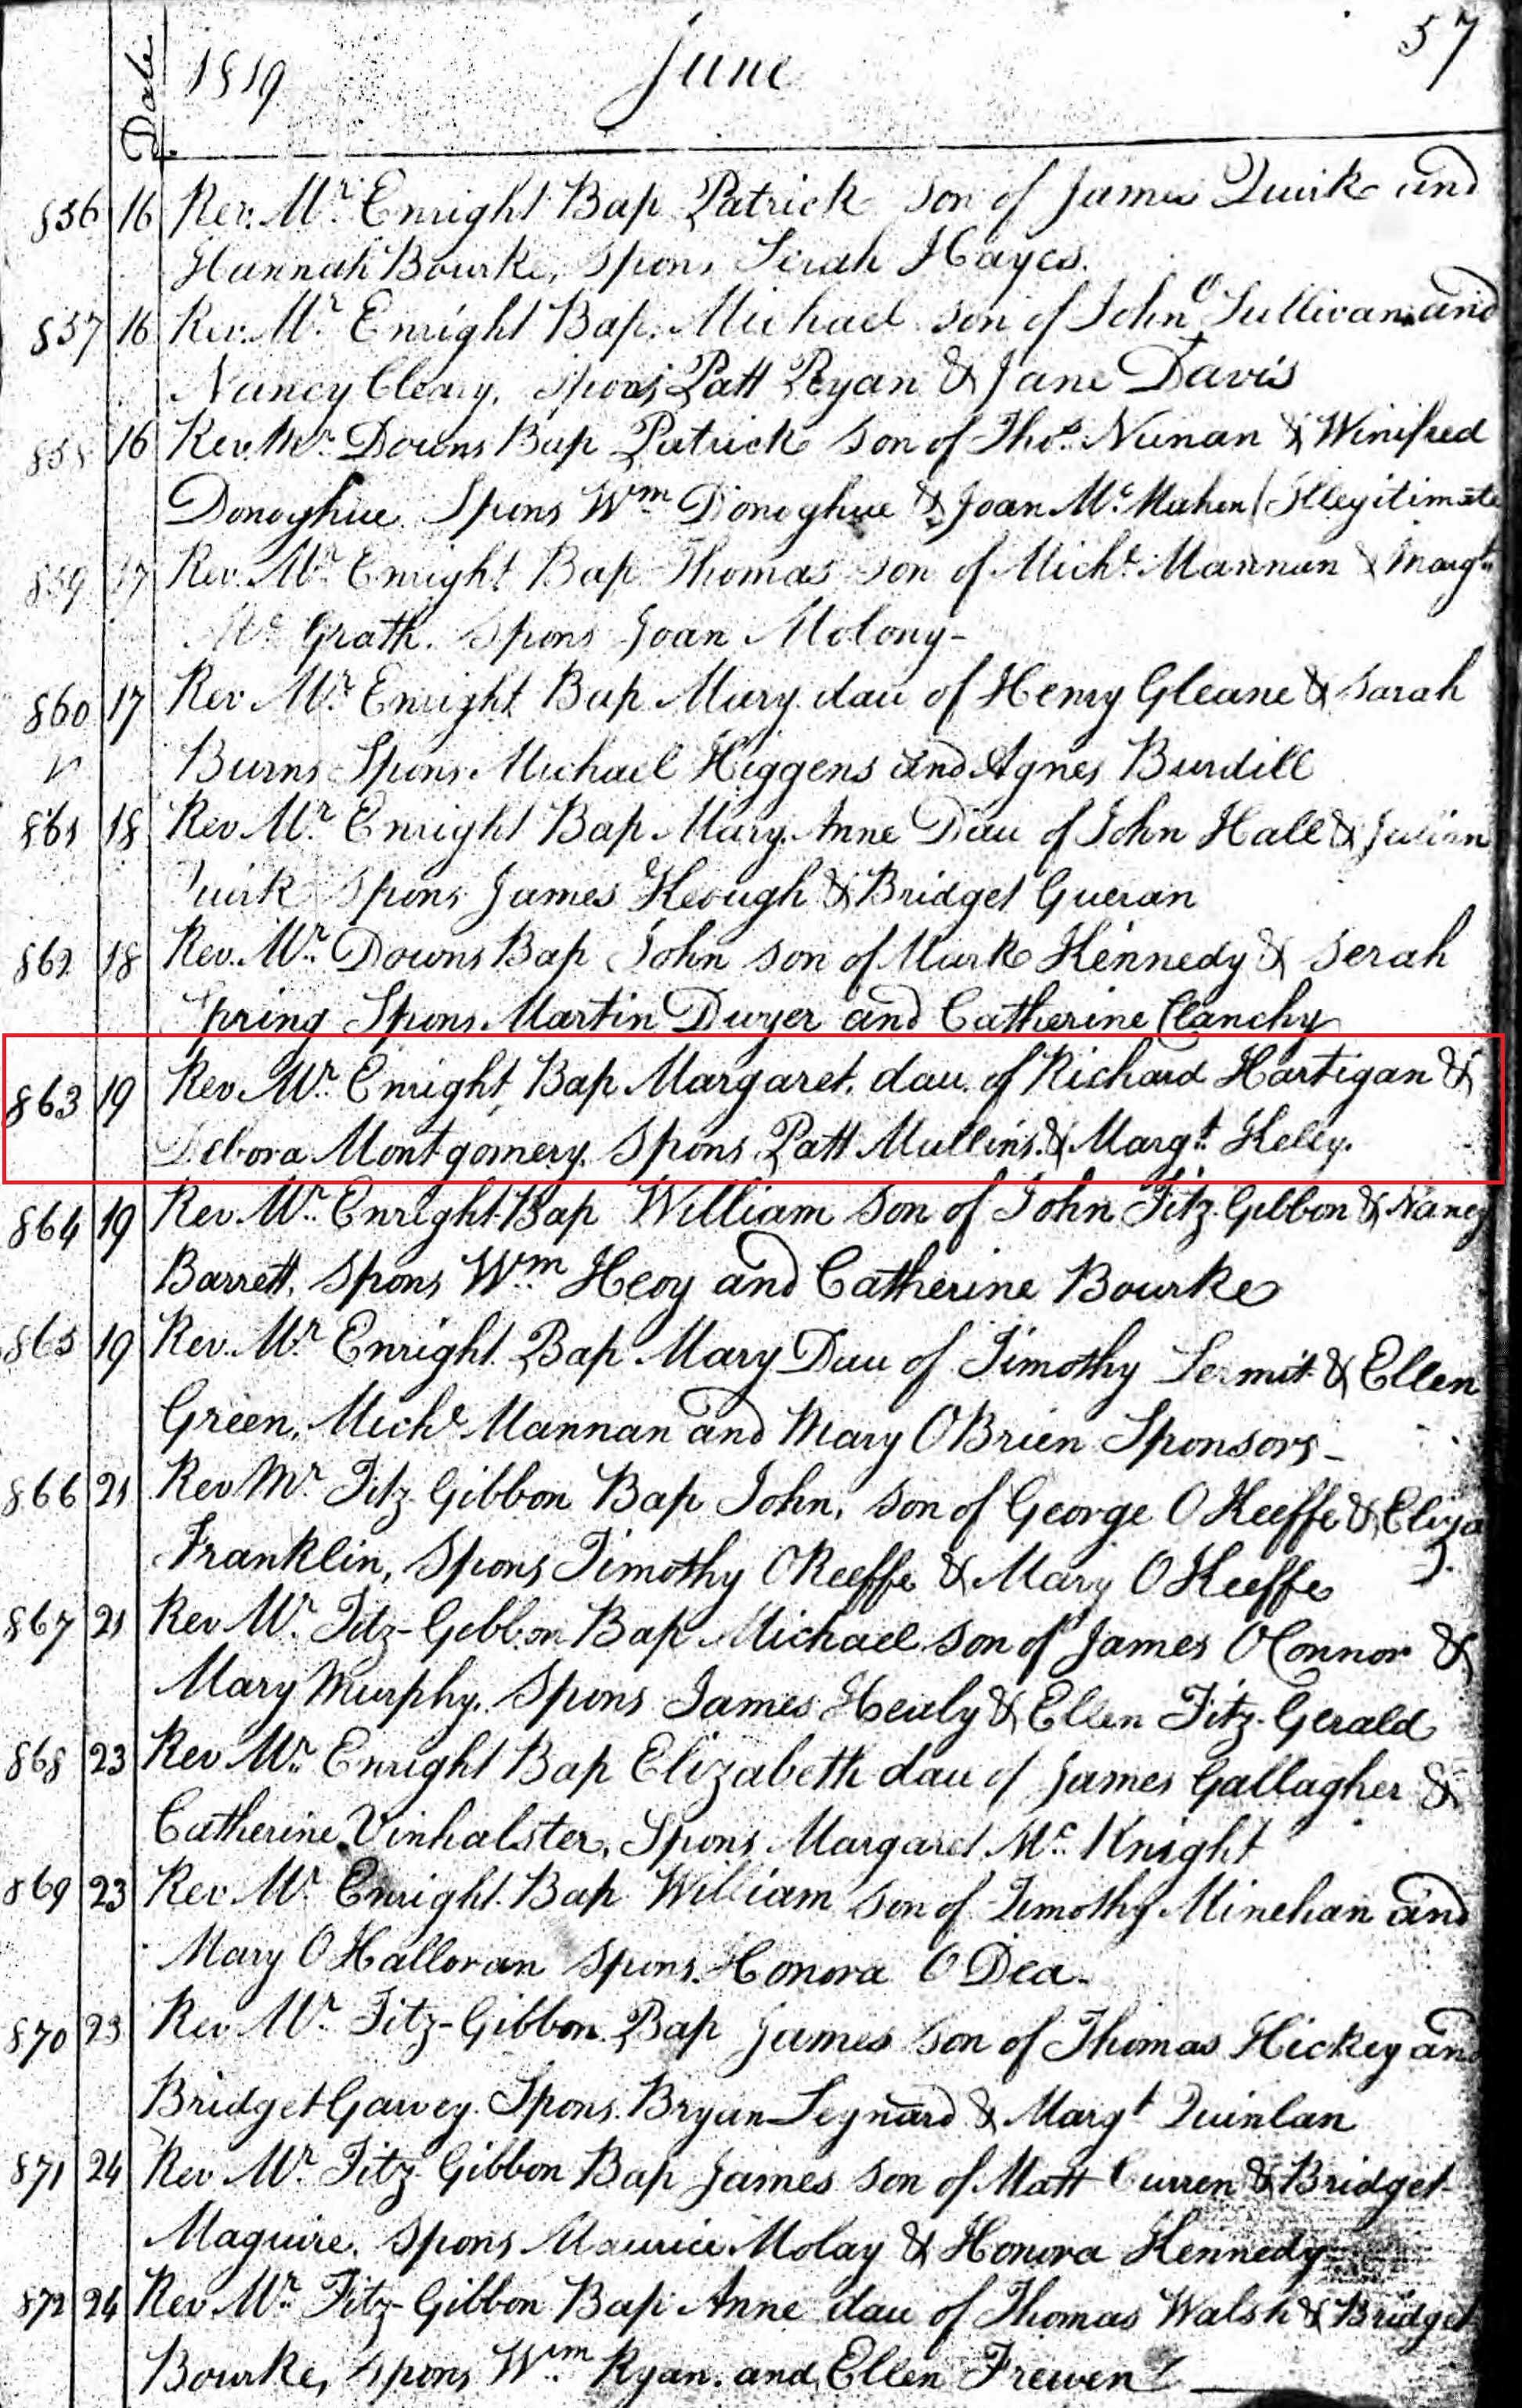 57
Date 1819 June
856 16 Rev. Mr. Enright Bap Patrick son of James Quirk and
Hannah Bourke, Spons Serah Hayes.
857 16 Rev. Mr. Enright Bap. Michael son of John O Sullivan and
Nancy Cleary, Spons Patt Ryan & Jane Davis
858 16 Rev. Mr. Downs Bap Patrick son of Thos. Nunan & Winifred
Donoghue Spons Wm Donoghue & Joan Mc. Mahon / Illegitimate
859 17 Rev. Mr. Enright Bap Thomas son of Michl. Mannan & Margt.
Mc Grath. Spons Joan Molony-
860 17 Rev Mr. Enright Bap Mary dau of Henry Gleane & Sarah
Burns Spons. Michael Higgens and Agnes Burdill
861 18 Rev Mr. Enright Bap Mary Anne Dau of John Hall & Julian
Quirk Spons James Keough & Bridget Gueran
862 18 Rev. Mr. Downs Bap John son of Mark Kennedy & Serah
Spring Spons. Martin Dwyer and Catherine Clanchy
863 19 Rev Mr. Enright, Bap Margaret. dau. of Richard Hartigan &
Debora Montgomery. Spons. Patt Mullins. & Margt. Kelly.
864 19 Rev. Mr. Enright. Bap William son of John Fitz.Gibbon & Nancy
Barrett, Spons Wm. Heoy and Catherine Bourke
865 19 Rev. Mr. Enright. Bap Mary Dau of Timothy & Ellen
Green, Michl Mannan and Mary OBrien Sponsors-
866 21 Rev Mr. Fitz Gibbon Bap John, son of George O Keeffe & Eliza
Franklin, Spons Timothy OKeeffe & Mary O Keeffe
867 21 Rev Mr. Fitz-Gibbon Bap Michael son of James OConnor &
Mary Murphy. Spons James Healy & Ellen Fitz-Gerald
868 23 Rev Mr. Enright Bap Elizabeth dau of James Gallagher &
Catherine Vinhalster, Spons Margaret Mc. Knight
869 23 Rev Mr. Enright. Bap William son of Timothy Minehan and
Mary O Halloran Spons. Honora O Dea-
870 23 Rev Mr. Fitz-Gibbon. Bap James son of Thomas Hickey and
Bridget Garvey. Spons. Bryan Leynard & Margt Quinlan
871 24 Rev Mr. Fitz Gibbon Bap James son of Matt Curren & Bridget
Maguire. Spons Maurice Molay & Honora Kennedy
872 24 Rev Mr. Fitz-Gibbon Bap Anne dau of Thomas Walsh & Bridget
Bourke, Spons Wm Ryan. and Ellen Frewen